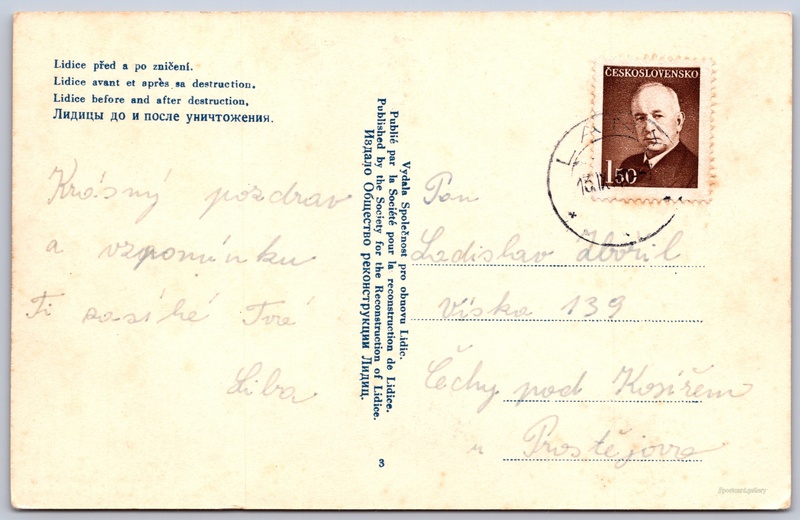 Lidice před a po zničení.
Lidice avant et après sa destruction.
Lidice before and after destruction.
Лидицы до и после уничтожения.
Krásný pozdrav
a vzpomínku
Ti zasílá Tvá
Liba
Vydala Společnost pro obnovu Lidic.
Publié par la Société pour la reconstruction de Lidice.
Published by the Society for the Reconstruction of Lidice.
Издало Общество реконструкции Лидиц.
3
ČESKOSLOVENSKO
1.50
Pan
Ladislav Zbořil
Víska 139
Čechy pod Kosířem
u Prostějova